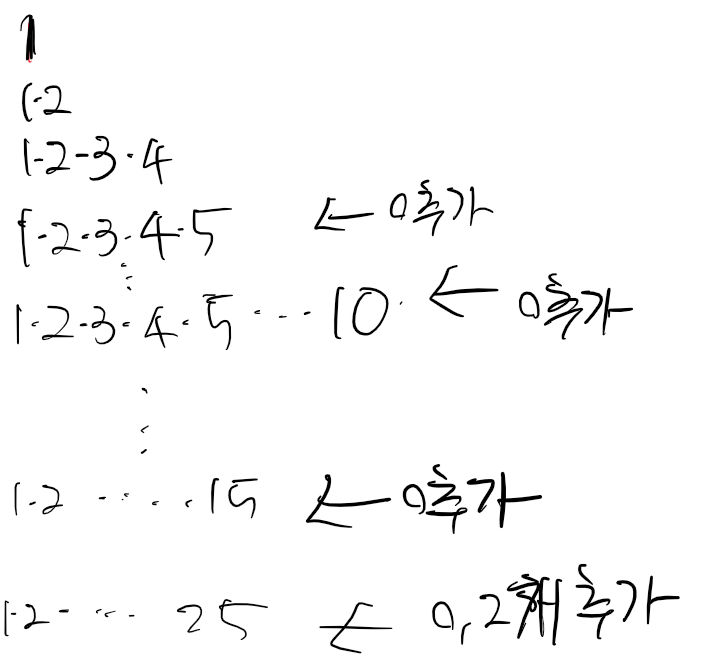 1
1·2
1·2·3·4
1·2·3·4·5 ← 0추가
⋮
1·2·3·4·5····10· ← 0추가
⋮
1·2·····15 ← 0추가
1·2···· 25 ← 0, 2개 추가